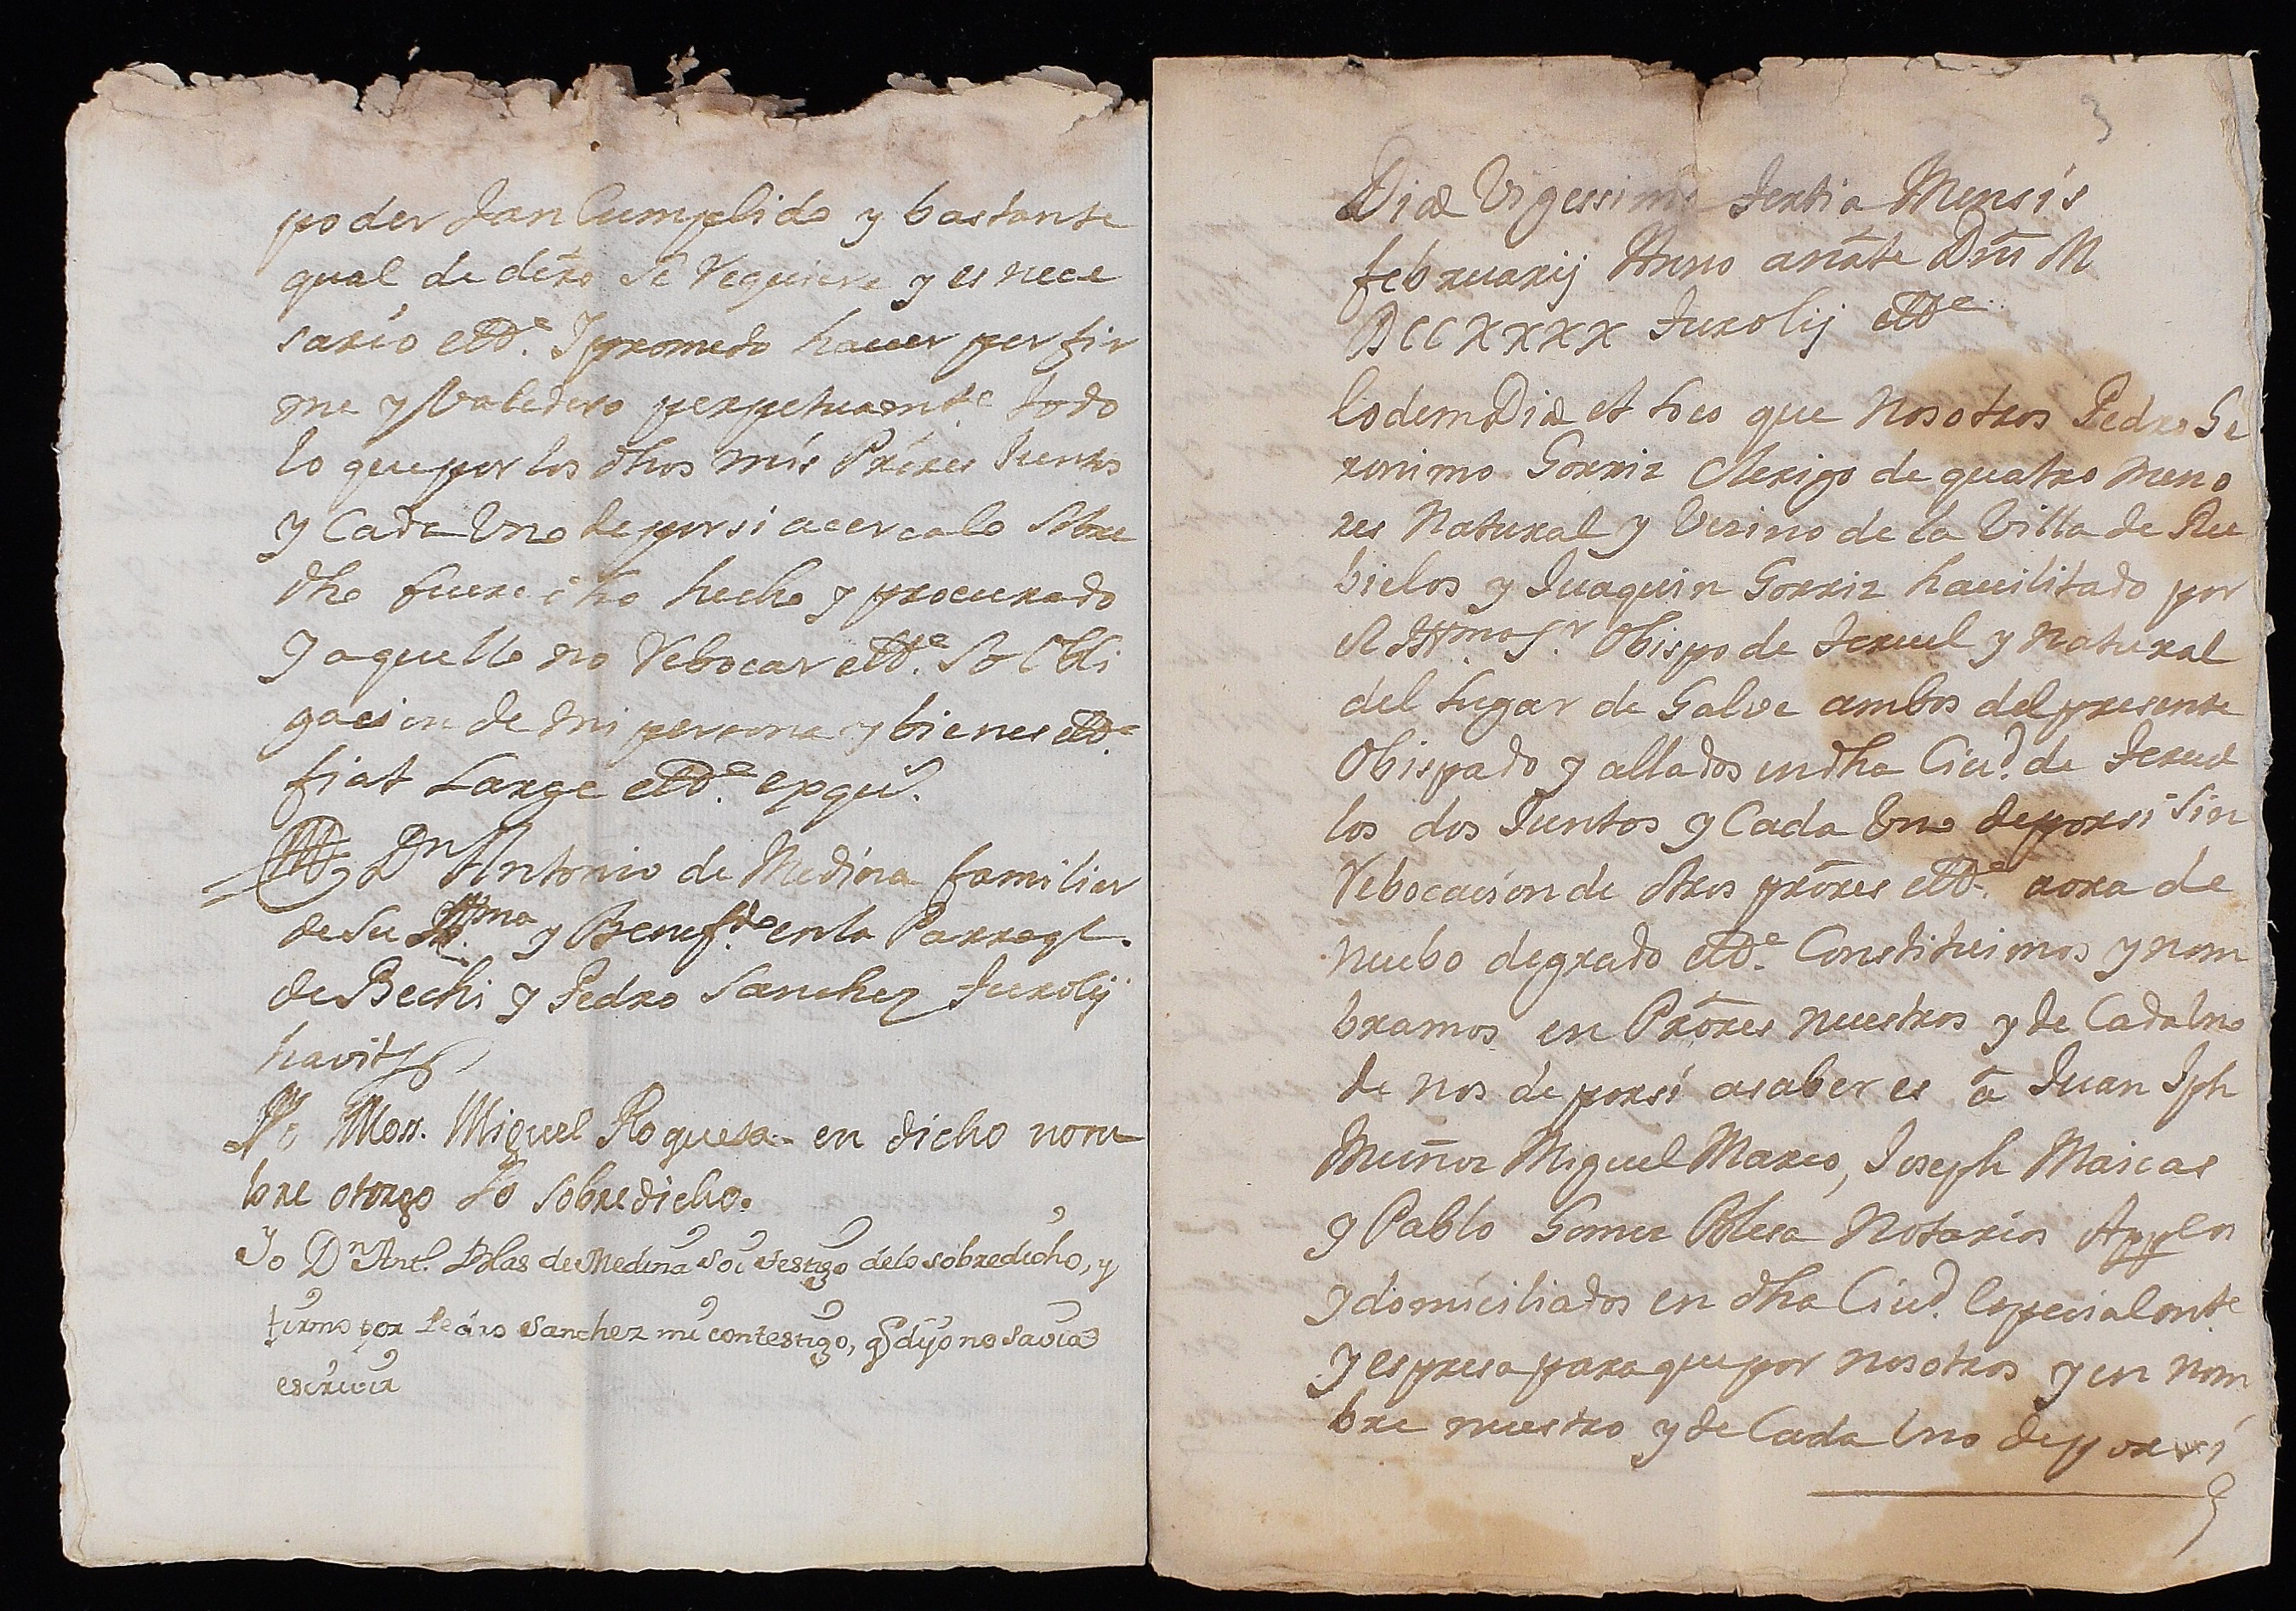 poder tan Cumplido y bastante
qual de dr̃o Se Requiere y es nece
sario ettª. Y prometo hauer por fir
me y Valedero perpetuamte todo
lo que por los dhos mis Prõres Juntos
y Cada Uno de por si acerca lo Sobre
dho fuere dho hecho y procurado
Y aquello no Rebocar ettª. So Obli
gacion de mi persona y bienes ettª
fiat Large ettª. exqu.
tt. Dn Antonio de Medina familiar
de Su Illma y Benefdo en la Parroql.
de Bechi y Pedro Sanchez Turolij
havit
Yo Moss. Miguel Roguesa en dicho nom
bre otorgo Lo sobredicho.
Yo Dn Ant. Blas de Medina Soi testigo de lo sobredicho, y
firmo por Pedro Sanchez mi contestigo, q dijo no Savia
escrivir
3
Die Vigessima tertia Mensis
februarij Anno anãte Dñi M
DCCXXXX Turolij ettª
Eodem Die et loco que Nosotros Pedro Ge
ronimo Gorriz Clerigo de quatro meno
res Natural y Vezino de la Villa de Ru
bielos y Juaquin Gorriz hauilitado por
el Illmo Sr. Obispo de Teruel y Natural
del Lugar de Galve ambos del presente
Obispado y allados en dha Ciud. de Teruel
los dos Juntos y Cada Uno de por si Sin
Rebocacion de otros prõres ettª aora de
nuebo de grado ettª Constituimos y nom
bramos en Prõres nuestros y de Cada Uno
de nos de por si a saber es à Juan Jph
Muñoz Miguel Marco, Joseph Maicas
y Pablo Gomez Blesa Notarios Appcos
y domiciliados en dha Ciud. Especialmte
y espresa para que por nosotros y en nom
bre nuestro y de Cada Uno de por si